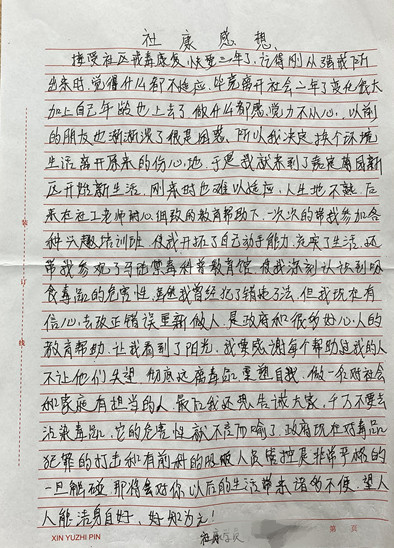 社康感想
接受社区戒毒康复,快要三年了,记得刚从强戒所
出来时,觉得什么都不适应,毕竟离开社会二年了变化很大
加上自己年龄也上去了做什么都感觉力不从心,以前
的朋友也渐渐没了很是困惑,所以我决定换个环境
生活离开原来的伤心地,于是我就来到了嘉定菊园新
区开始新生活,刚来时也难以适应,人生地不熟,后
来在社工老师耐心细致的教育帮助下,一次次的带我参加各
种兴趣培训班,使我开拓了自己动手能力,充实了生活,还
带我参观了 禁毒科普教育馆,使我深刻认识到吸
食毒品的危害性,虽然我曾经犯了错地了法,但我现在有
信心去改正错误重新做人,是政府和很多好心人的
教育帮助,让我看到了阳光,我要感谢每个帮助过我的人
不让他们失望,彻底远离毒品,重塑自我,做一名对社会
和家庭有担当的人,最后我还要告诫大家,千万不要去
沾染毒品,它的危害性就不言而喻了,政府现在对毒品
犯罪的打击和有前科的吸贩人员管控是非常严格的
一旦触碰,那将会对你以后的生活带来诸多不便,望人
人能洁身自好,好知为之!
社康学员
装订线
XIN YUZHI PIN
第 页